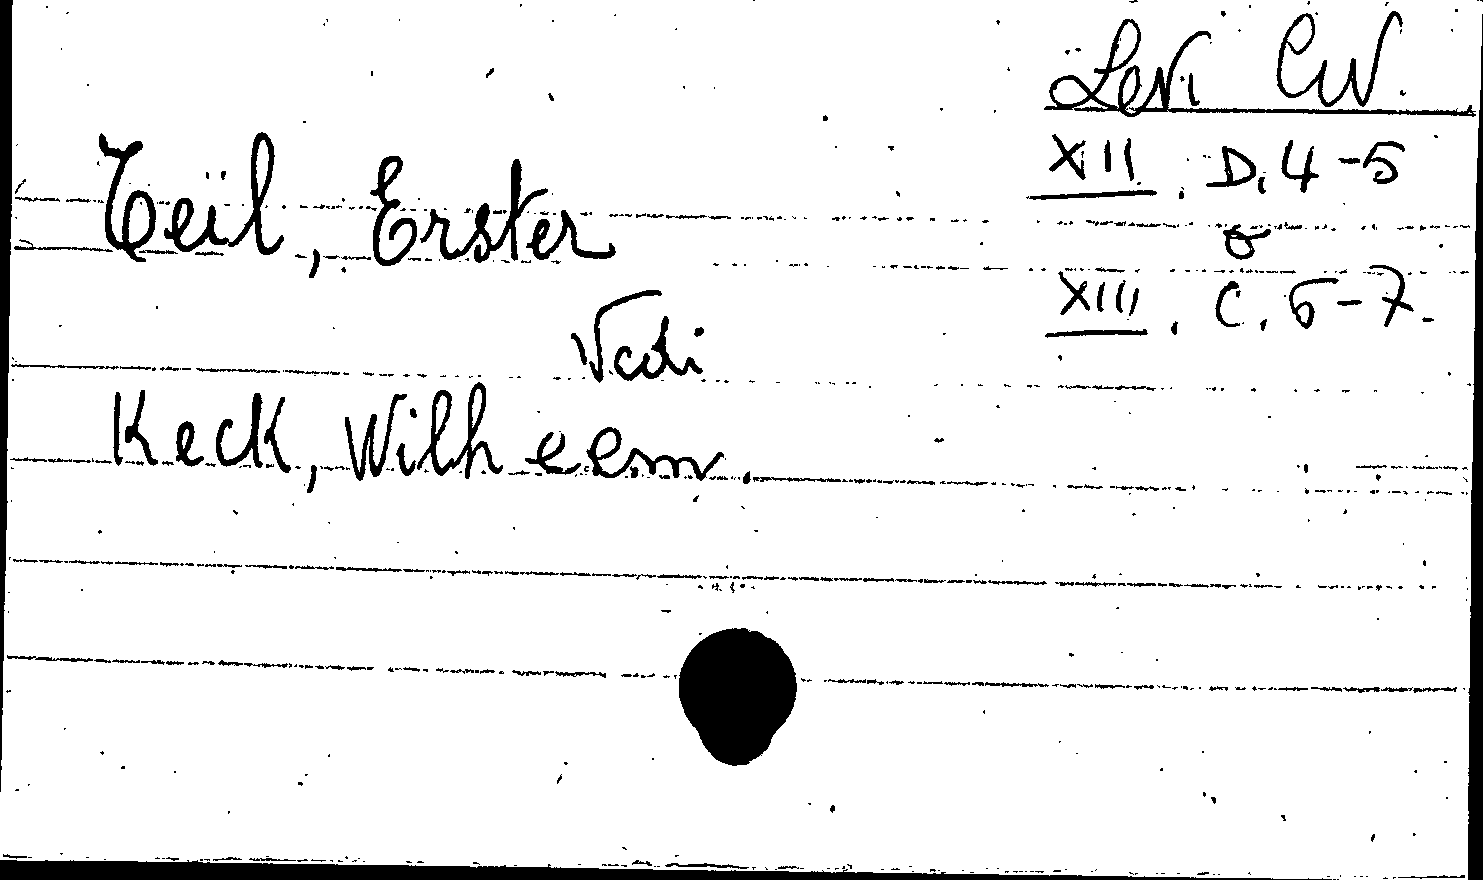 Levi CW.
XII. D. 4-5
&
XIII. C. 6-7.
Teil, Erster
Vadi
Keck, Wilheem.